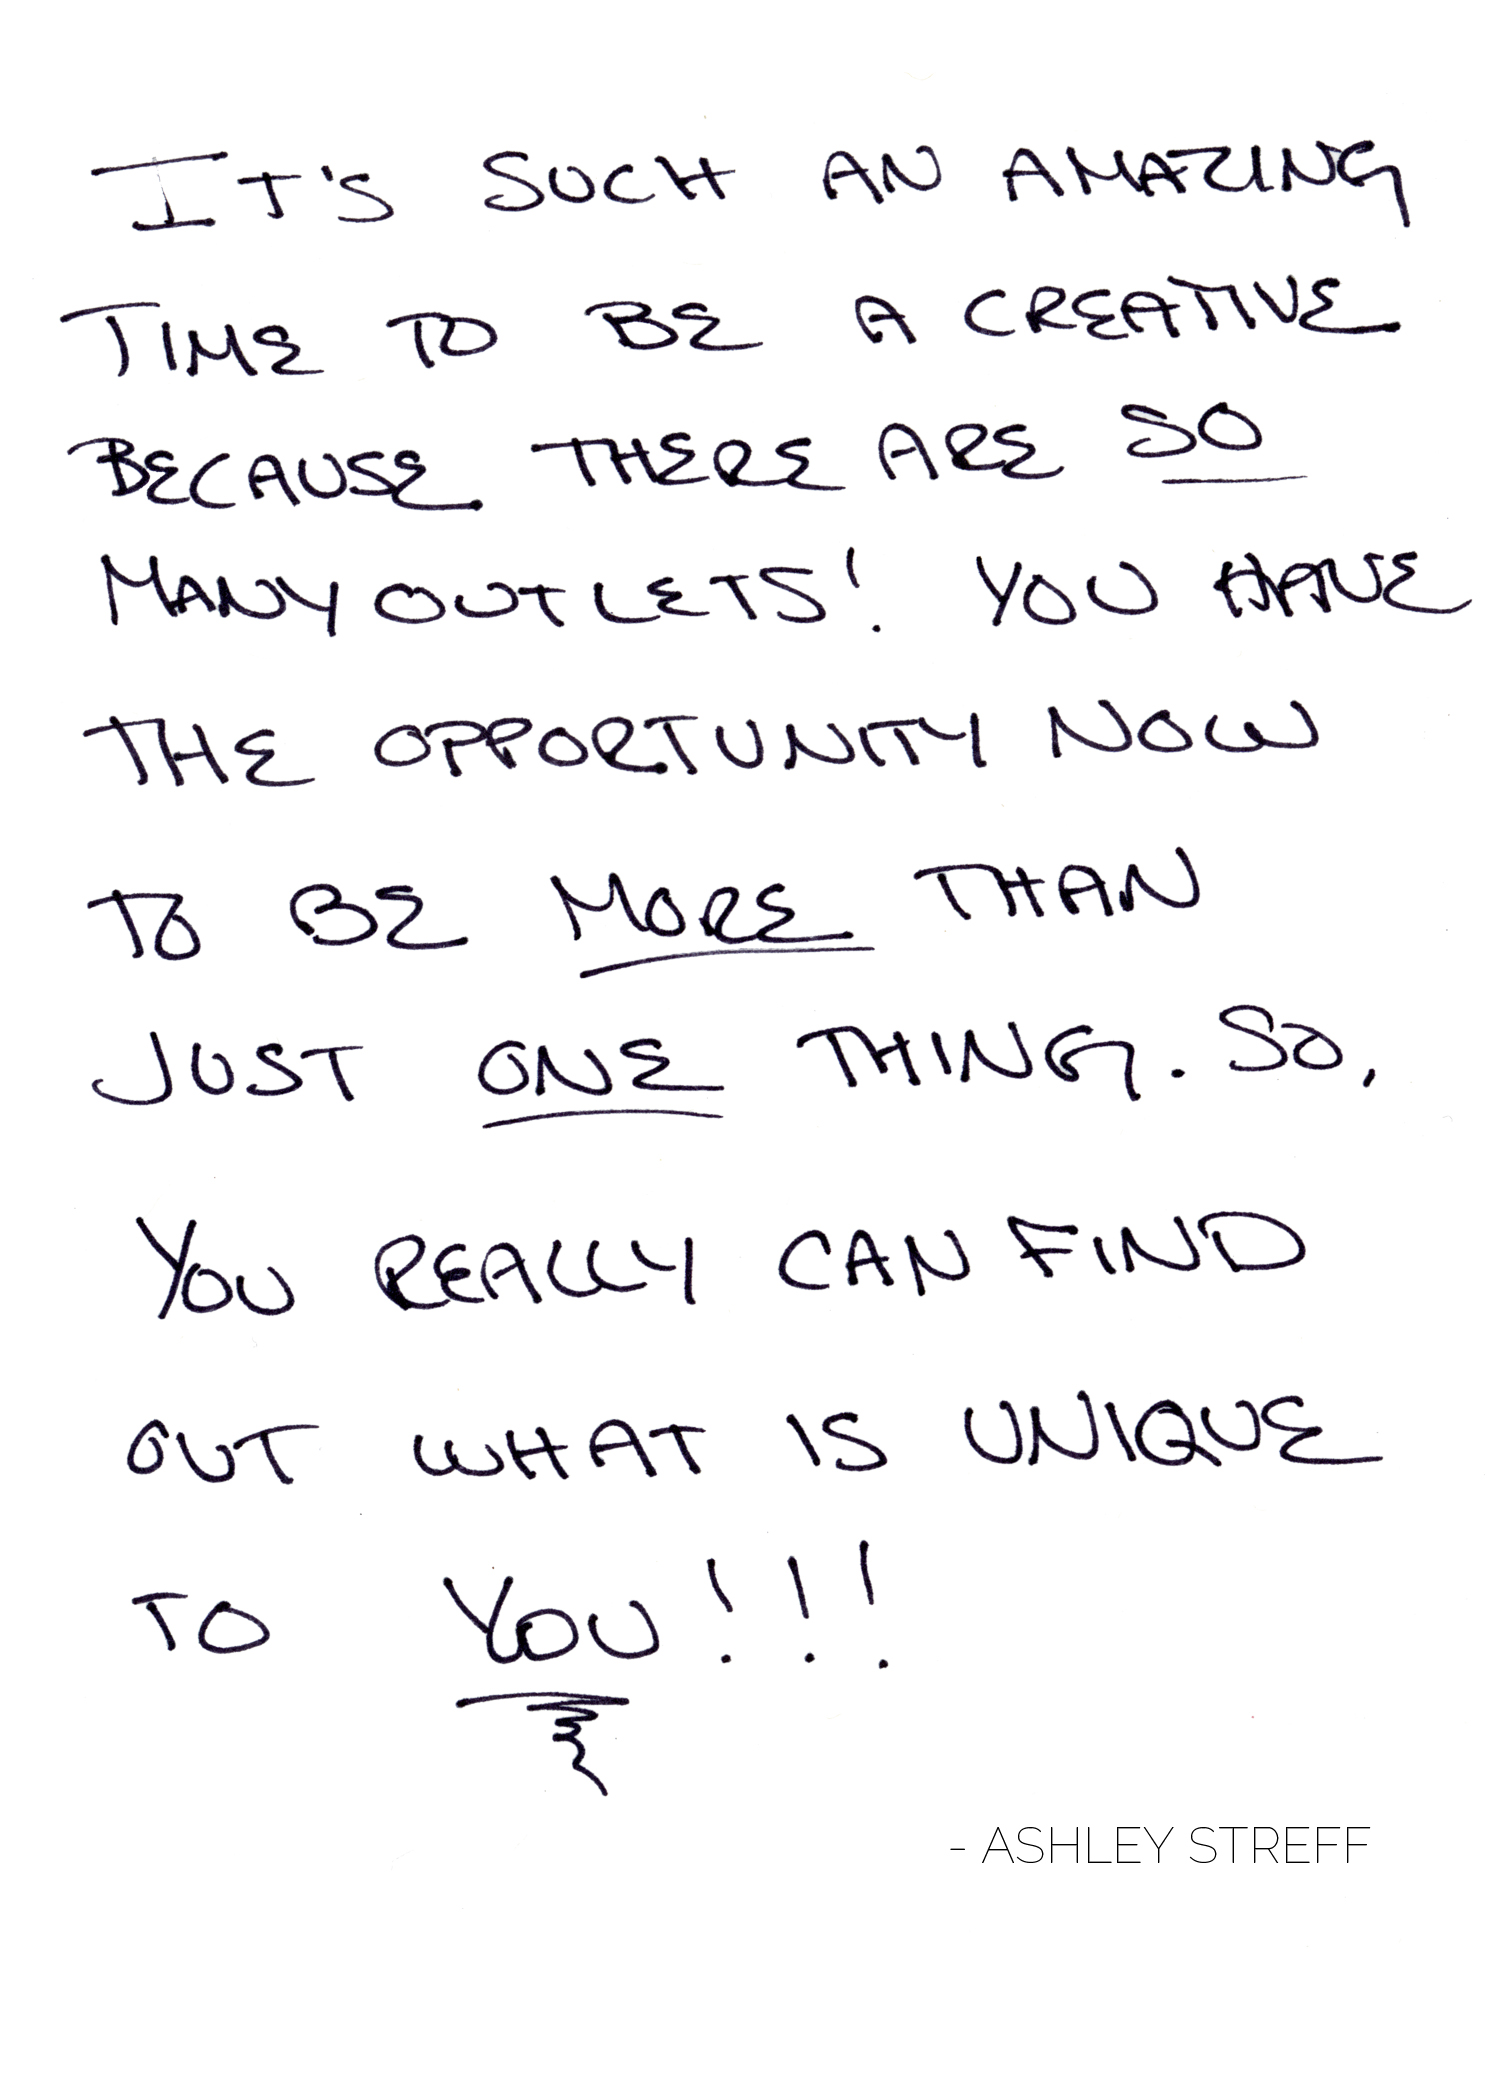 IT'S SUCH AN AMAZING
TIME TO BE A CREATIVE
BECAUSE THERE ARE SO
MANY OUTLETS! YOU HAVE
THE OPPORTUNITY NOW
TO BE MORE THAN
JUST ONE THING. SO,
YOU REALLY CAN FIND
OUT WHAT IS UNIQUE
TO YOU!!!
- ASHLEY STREFF